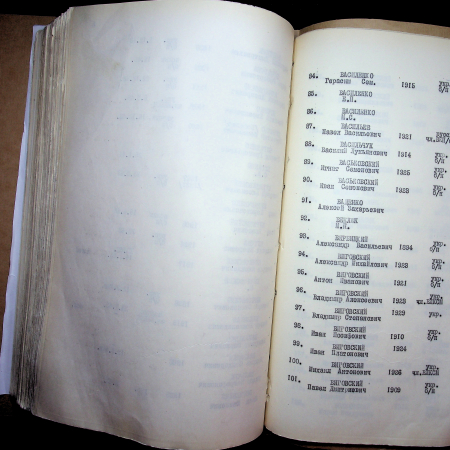 84. ВАСИЛЕНКО
Герасим Сем. 1915 укр. б/п
85. ВАСИЛЕНКО
И.П.
86. ВАСИЛЕНКО
М.С.
87. ВАСИЛЬЕВ
Павел Васильевич 1921
88. ВАСИЛЬЧУК
Василий Лукьянович 1914 укр. б/п
89. ВАСЬКОВСКИЙ
Семенович 1925 укр. б/п
90. ВАСЬКОВСКИЙ
Иван Семенович 1923 укр. б/п
91. ВАЩЕНКО
Алексей Захарьевич
92.
93.
Александр Васильевич 1894 укр. б/п
94. ВИГОВСКИЙ
Александр Михайлович 1923 укр. б/п
95. ВИГОВСКИЙ
Антон Иванович 1921 укр. б/п
96. ВИГОВСКИЙ
Владимир Алексеевич 1923 укр. чл.ВЛКСМ
97. ВИГОВСКИЙ 1929 укр.
Владимир Степанович
98. ВИГОВСКИЙ
Иван Иосифович 1910 укр. б/п
99. ВИГОВСКИЙ 1924
Иван Платонович
100. ВИГОВСКИЙ
Михаил Антонович 1926 укр. чл.ВЛКСМ
101. ВИГОВСКИЙ
Павел Дмитриевич 1909 укр. б/п